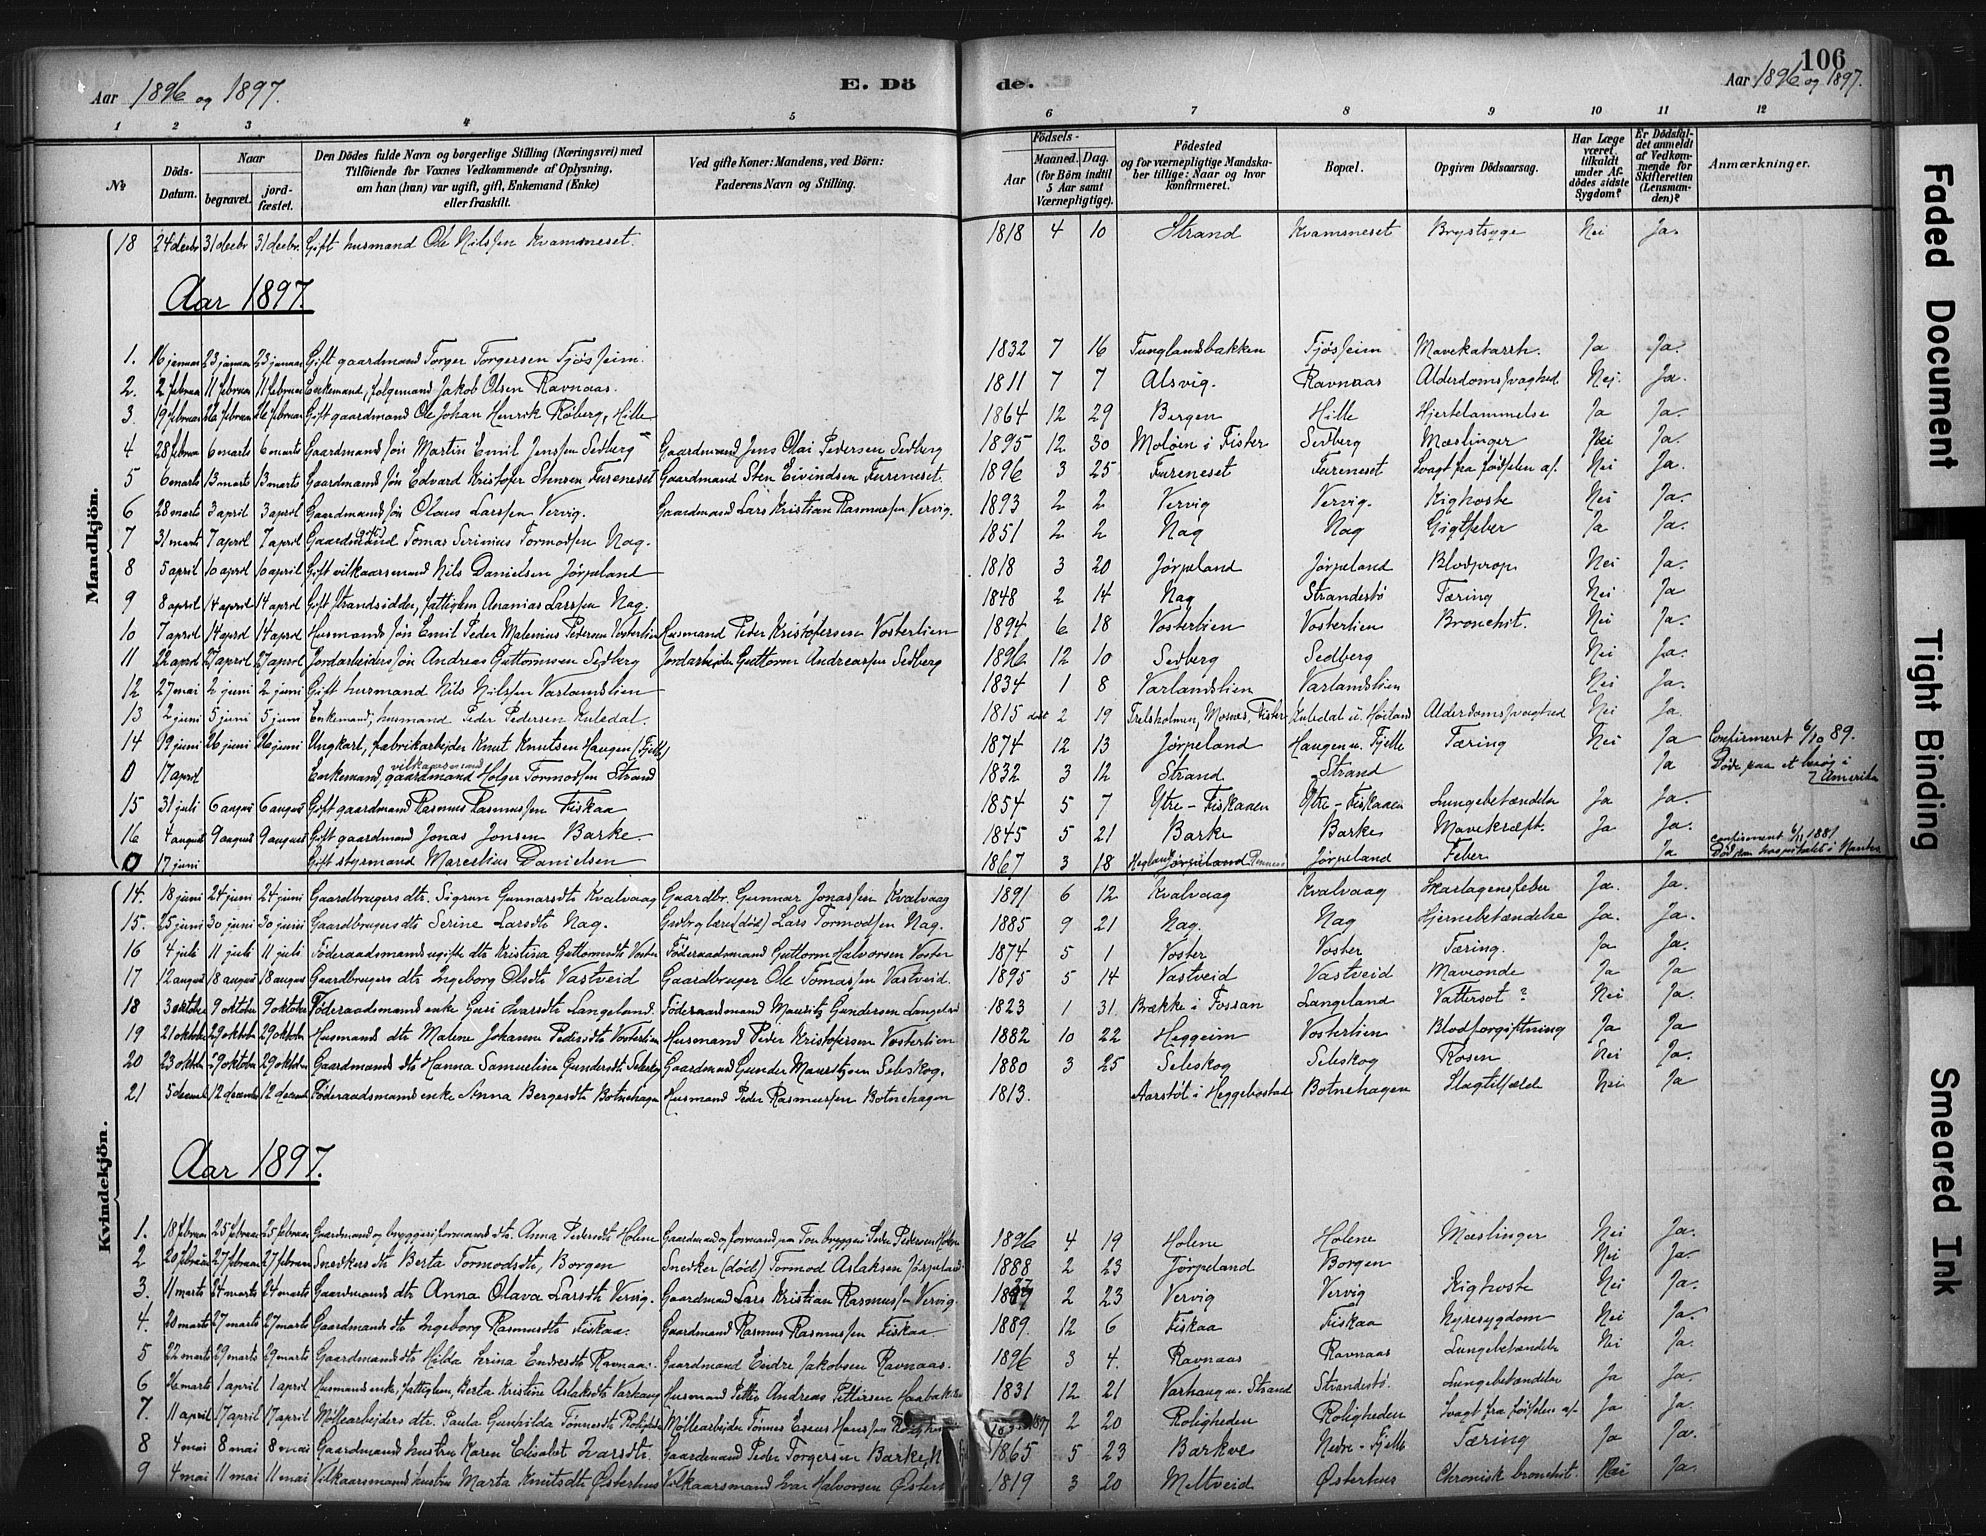 106
Aar 1896 og 1897. E. Dö de. Aar 1896 og 1897.
1 2 3 4 5 6 7 8 9 10 11 12
№ Döds-Datum. Naar begravet. jordfæstet. Den Dödes fulde Navn og borgerlige Stilling (Næringsvei) med Tilföiende for Voxnes Vedkommende af Oplysning, om han (hun) var ugift, gift, Enkemand (Enke) eller fraskilt. Ved gifte Koner: Mandens, ved Börn: Faderens Navn og Stilling. Födsels- Aar Maaned. Dag. (for Börn indtil 5 Aar samt Værnepligtige). Födested og for værnepligtige Mandskaber tillige: Naar og hvor konfirmeret. Bopæl. Opgiven Dödsaarsag. Har Læge været tilkaldt under Afdödes sidste Sygdom? Er Dödsfaldet anmeldt af Vedkommende for Skifteretten (Lensmanden)? Anmærkninger.
Mandkjön.
18 24 decbr 31 decbr 31 decbr. Gift husmand Ole Nilssen Kvamsneset. 1818 4 10 Strand Kvamsneset Brystsyge Nei Ja.
Aar 1897.
1. 16 januar 23 januar 23 januar Gift gaardmand Torger Torgersen Tjøsseim. 1832 7 16 Tunglandsbakken Tjøsseim Mavekatarrh. Ja Ja.
2. 2 februar 11 februar 11 februar Enkemand, folgemand Jakob Olsen Ravnaas. 1811 7 7 Alsvig. Ravnaas Alderdomssvaghed Nei. Ja.
3. 19 februar 26 februar 26 februar Gift gaardmand Ole Johan Henrik Røberg, Hille 1864 12 29 Bergen Hille Hjertelammelse Ja Ja.
4 28 februar 6 marts 6 marts Gaardmands søn Martin Emil Jenssen Sedberg Gaardmand Jens Olai Pedersen Sedberg 1895 12 30 Moløen i Fister Sedberg Mæslinger Nei Ja.
5 6 marts 13 marts 13 marts Gaardmands søn Edvard Kristofer Stensen Fureneset Gaardmand Sten Eivindsen Fureneset. 1896 3 25 Fureneset Fureneset Svagt fra fødselen af. Nei Ja.
6 28 marts 3 april 3 april Gaardmands søn Olaus Larssen Vervig. Gaardmand Lars Kristian Rasmussen Vervig. 1893 2 2 Vervig Vervig. Kighoste Nei Ja.
7 31 marts 7 april 7 april Gaardmand (gift) Tomas Serinius Tormodsen Nag. 1851 2 2 Nag Nag Gigtfeber Ja Ja.
8 5 april 10 april 10 april Gift vilkaarsmand Nils Danielsen Jørpeland 1818 3 20 Jørpeland Jørpeland Blodprop Nei Ja.
9 8 april 14 april 14 april Gift strandsidder, fattiglem Ananias Larssen Nag. 1848 2 14 Nag Strandestø Tæring Nei Ja
10 7 april 14 april 14 april Husmands søn Emil Peder Malenius Pedersen Vosterlien Husmand Peder Kristofersen Vosterlien 1894 6 18 Vosterlien Vosterlien Bronchit. Nei Ja.
11 22 april 27 april 27 april Jordarbeiders søn Andreas Guttormsen Sedberg Jordarbeider Guttorm Andreassen Sedberg 1896 12 10 Sedberg Sedberg Nei Ja.
12 27 mai 2 juni 2 juni Gift husmand Nils Nilssen Varlandslien 1834 1 8 Varlandslien Varlandslien Nei Ja.
13 2 juni 5 juni 5 juni Enkemand, husmand Peder Pedersen Kuledal. 1815 døbt 2 19 Trelsholmen, Mosnæs, Fister Kuledal u. Høiland Alderdomssvaghed Nei Ja
14 19 juni 26 juni 26 juni Ungkarl, fabrikarbeider Knut Knutsen Haugen (Fjelle) 1874 12 13 Jørpeland Haugen u. Fjelle Tæring Nei Ja Confirmeret 6/10 89.
0 17 april Enkemand, vilkaarsmand gaardmand Holger Tormodsen Strand 1832 3 12 Strand Strand Ja Døde paa et besøg i Amerika
15 31 juli 6 august 6 august Gift gaardmand Rasmus Rasmussen Fiskaa 1854 5 7 Ytre-Fiskaaen Ytre-Fiskaaen Lungebetændelse Ja Ja.
16 4 august 9 august 9 august Gift gaardmand Jonas Jonsen Barke 1845 5 21 Barke Barke Mavekræft. Ja Ja.
0 17 juni Gift styrmand Marcelius Danielsen 1867 3 18 Jørpeland Jørpeland Feber Ja Confirmert 6/11 1881 Død paa hospitalet i Nantes
Kvindekjön.
14. 18 juni 24 juni 24 juni Gaardbrugers dtr. Sigrun Gunnarsdt Kvalvaag Gaardbr. Gunnar Jonassen Kvalvaag 1891 6 12 Kvalvaag Kvalvaag Skarlagensfeber Ja. Ja.
15. 25 juni 30 juni 30 juni Gaardbrugers dt. Serine Larsdt Nag. Lars Tormodsen Nag. 1885 9 21 Nag. Nag Hjernebetændelse Ja. Ja.
16 4 juli 11 juli 11 juli Føderaadsmands ugifte dt Kristina Guttormsdt Voster Føderaadsmand Guttorm Halvorsen Voster 1874 5 1 Voster Voster Tæring. Ja Ja.
17 12 august 18 august 18 august Gaardbrugers dt. Ingeborg Olsdt Vastveid Gaardbruger Ole Tomassen Vastveid. 1895 5 14 Vastveid Vastveid Maveonde Ja Ja
18 3 oktober 9 oktober 9 oktober Føderaadsmands enke Guri Ivarsdt Langeland. Føderaadsmand Mauritz Gundersen Langeland 1823 1 31. Brække i Fossan Langeland Vattersot? Nei Ja.
19 21 oktober 29 oktober 29 oktober Husmands dt. Malene Johanne Pedersdt Vosterlien Husmand Peder Kristofersen Vosterlien 1882 10 22 Heggeim Vosterlien Blodforgiftning Ja Ja
20 23 oktober 29 oktober 29 oktober Gaardmands dt. Hanna Samueline Gundersdt Seleskog Gaardmand Gunder Mauritzsen Seleskog. 1880 3 25 Seleskog Seleskog Rosen Nei Ja.
21 5 decemb 12 decemb 12 decemb Føderaadsmands enke Anna Bergesdt Botnehagen Husmand Peder Rasmussen Botnehagen 1813. Aarstöl i Heggebostad Botnehagen Slagtilfælde Nei Ja
Aar 1897.
1. 18 februar 25 februar 25 februar Gaardmand og bryggeriformands dt. Anna Pedersdt Holene Gaardmand og formand paa Tou bryggeri Peder Pedersen Holene 1896 4 19 Holene Holene Mæslinger Nei Ja.
2 20 februar 27 februar 27 februar Snedkers dt Berta Tormodsdt, Borgen Snedker (død) Tormod Aslaksen Jørpeland 1888 2 23 Jørpeland Borgen Nei Ja.
3. 11 marts 24 marts 24 marts Gaardmands dt Anna Olava Larsdt Vervig. Gaardmand Lars Kristian Rasmussen Vervig. 2 23 Vervig Vervig Kighoste Nei Ja.
4. 20 marts 27 marts 27 marts Gaardmands dt. Ingeborg Rasmusdt Fiskaa. Gaardmand Rasmus Rasmussen Fiskaa 1889. 12 6 Fiskaa Fiskaa Nyresygdom Nei Ja.
5 22 marts 29 marts 29 marts Gaardmands dt Hilda Serina Endresdt Ravnaas. Gaardmand Endre Jakobsen Ravnaas. 1896 3 4. Ravnaas Ravnaas Lungebetændelse Nei Ja
6 26 marts 1 april 1 april Husmands enke, fattiglem, Berta Kristine Aslaksdt Varhaug Husmand Petter Andreas Pettersen 1831 12 21 Varhaug u. Strand Strandestø. Lungebetændelse Ja Ja.
7. 11 april 17 april 17 april Møllearbeiders dtr. Paula Gunhilda Tønnesdt Roligheden Møllearbeider Tønnes Hanssen 1897 2 20 Roligheden Roligheden Svagt fra fødselen af Ja Ja.
8 4 mai 8 mai 8 mai Gaardmands hustru Karen Elisabet Ivarsdt. Gaardmand Peder Torgersen Barke 1865 5 23 Barkve Nedre-Fjelle Tæring Ja Ja.
9 4 mai 11 mai 11 mai Vilkaarsmands hustru Marta Knutsdt Østerhus Vilkaarsmand Ivar Halvorsen 1819 3 20 Meltveid Østerhus Chronisk bronchit. Nei Ja
Faded Document
Tight Binding
Smeared Ink